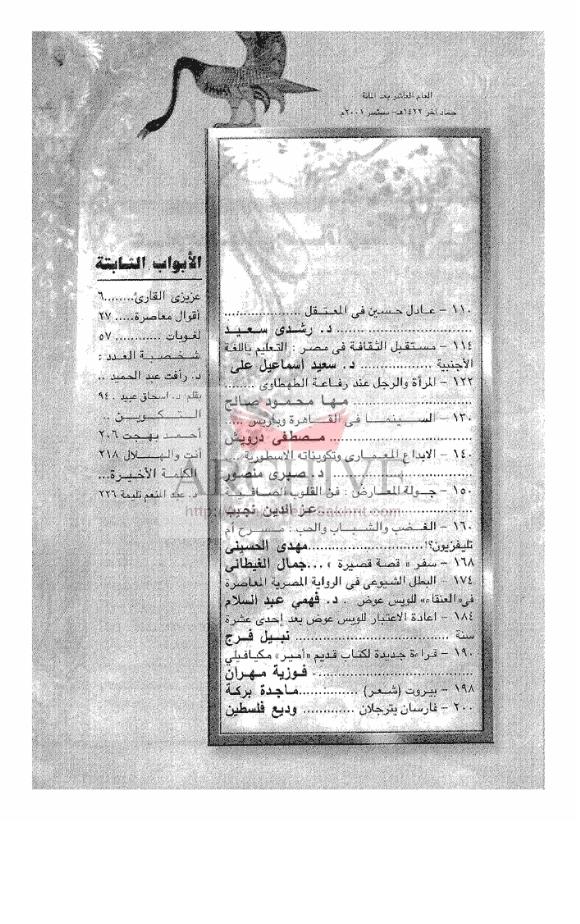 العام العاشر بعد المائة
جماد آخر ١٤٢٢هـ - سبتمبر ٢٠٠١م
١١٠ - عادل حسين فى المعتقل ...................
................................ د. رشدى سعيد
١١٤ - مستقبل الثقافة فى مصر : التعليم باللغة
الأجنبية ................ د. سعيد اسماعيل على
١٢٢ - المرأة والرجل عند رفاعة الطهطاوى ........
............................ مها محمود صالح
١٣٠ - السينما فى القاهرة وباريس ....
............................ مصطفى درويش
١٤٠ - الابداع المعمارى وتكويناته الاسطورية ...
............................ د. صبرى منصور
١٥٠ - جولة المعارض : فن القلوب الصافية
............................ عز الدين نجيب
١٦٠ - الغضب والشباب والحب : مسرح أم
تليفزيون؟! ............................ مهدى الحسينى
١٦٨ - سفر « قصة قصيرة » ... جمال الغيطانى
١٧٤ - البطل الشيوعى فى الرواية المصرية المعاصرة
فى «العنقاء» للويس عوض .. د. فهمى عبد السلام
١٨٤ - اعادة الاعتبار للويس عوض بعد إحدى عشرة
سنة ................................ نبيل فرج
١٩٠ - قراءة جديدة لكتاب قديم «أمير» مكيافيلي
................................ فوزية مهران
١٩٨ - بيروت (شعر) ............... ماجدة بركة
٢٠٠ - فارسان يترجلان ............. وديع فلسطين
الأبواب الثابتة
عزيزى القارئ........ ٦
أقوال معاصرة..... ٢٧
لغويات ............ ٥٧
شخصية العدد :
د. رأفت عبد الحميد ..
بقلم د. اسحاق عبيد . ٩٤
التكوين
أحمد بهجت ٢٠٦
أنت والهلال ٢١٨
الكلمة الأخيرة...
د. عبد المنعم تليمة ٢٢٦
ARCHIVE